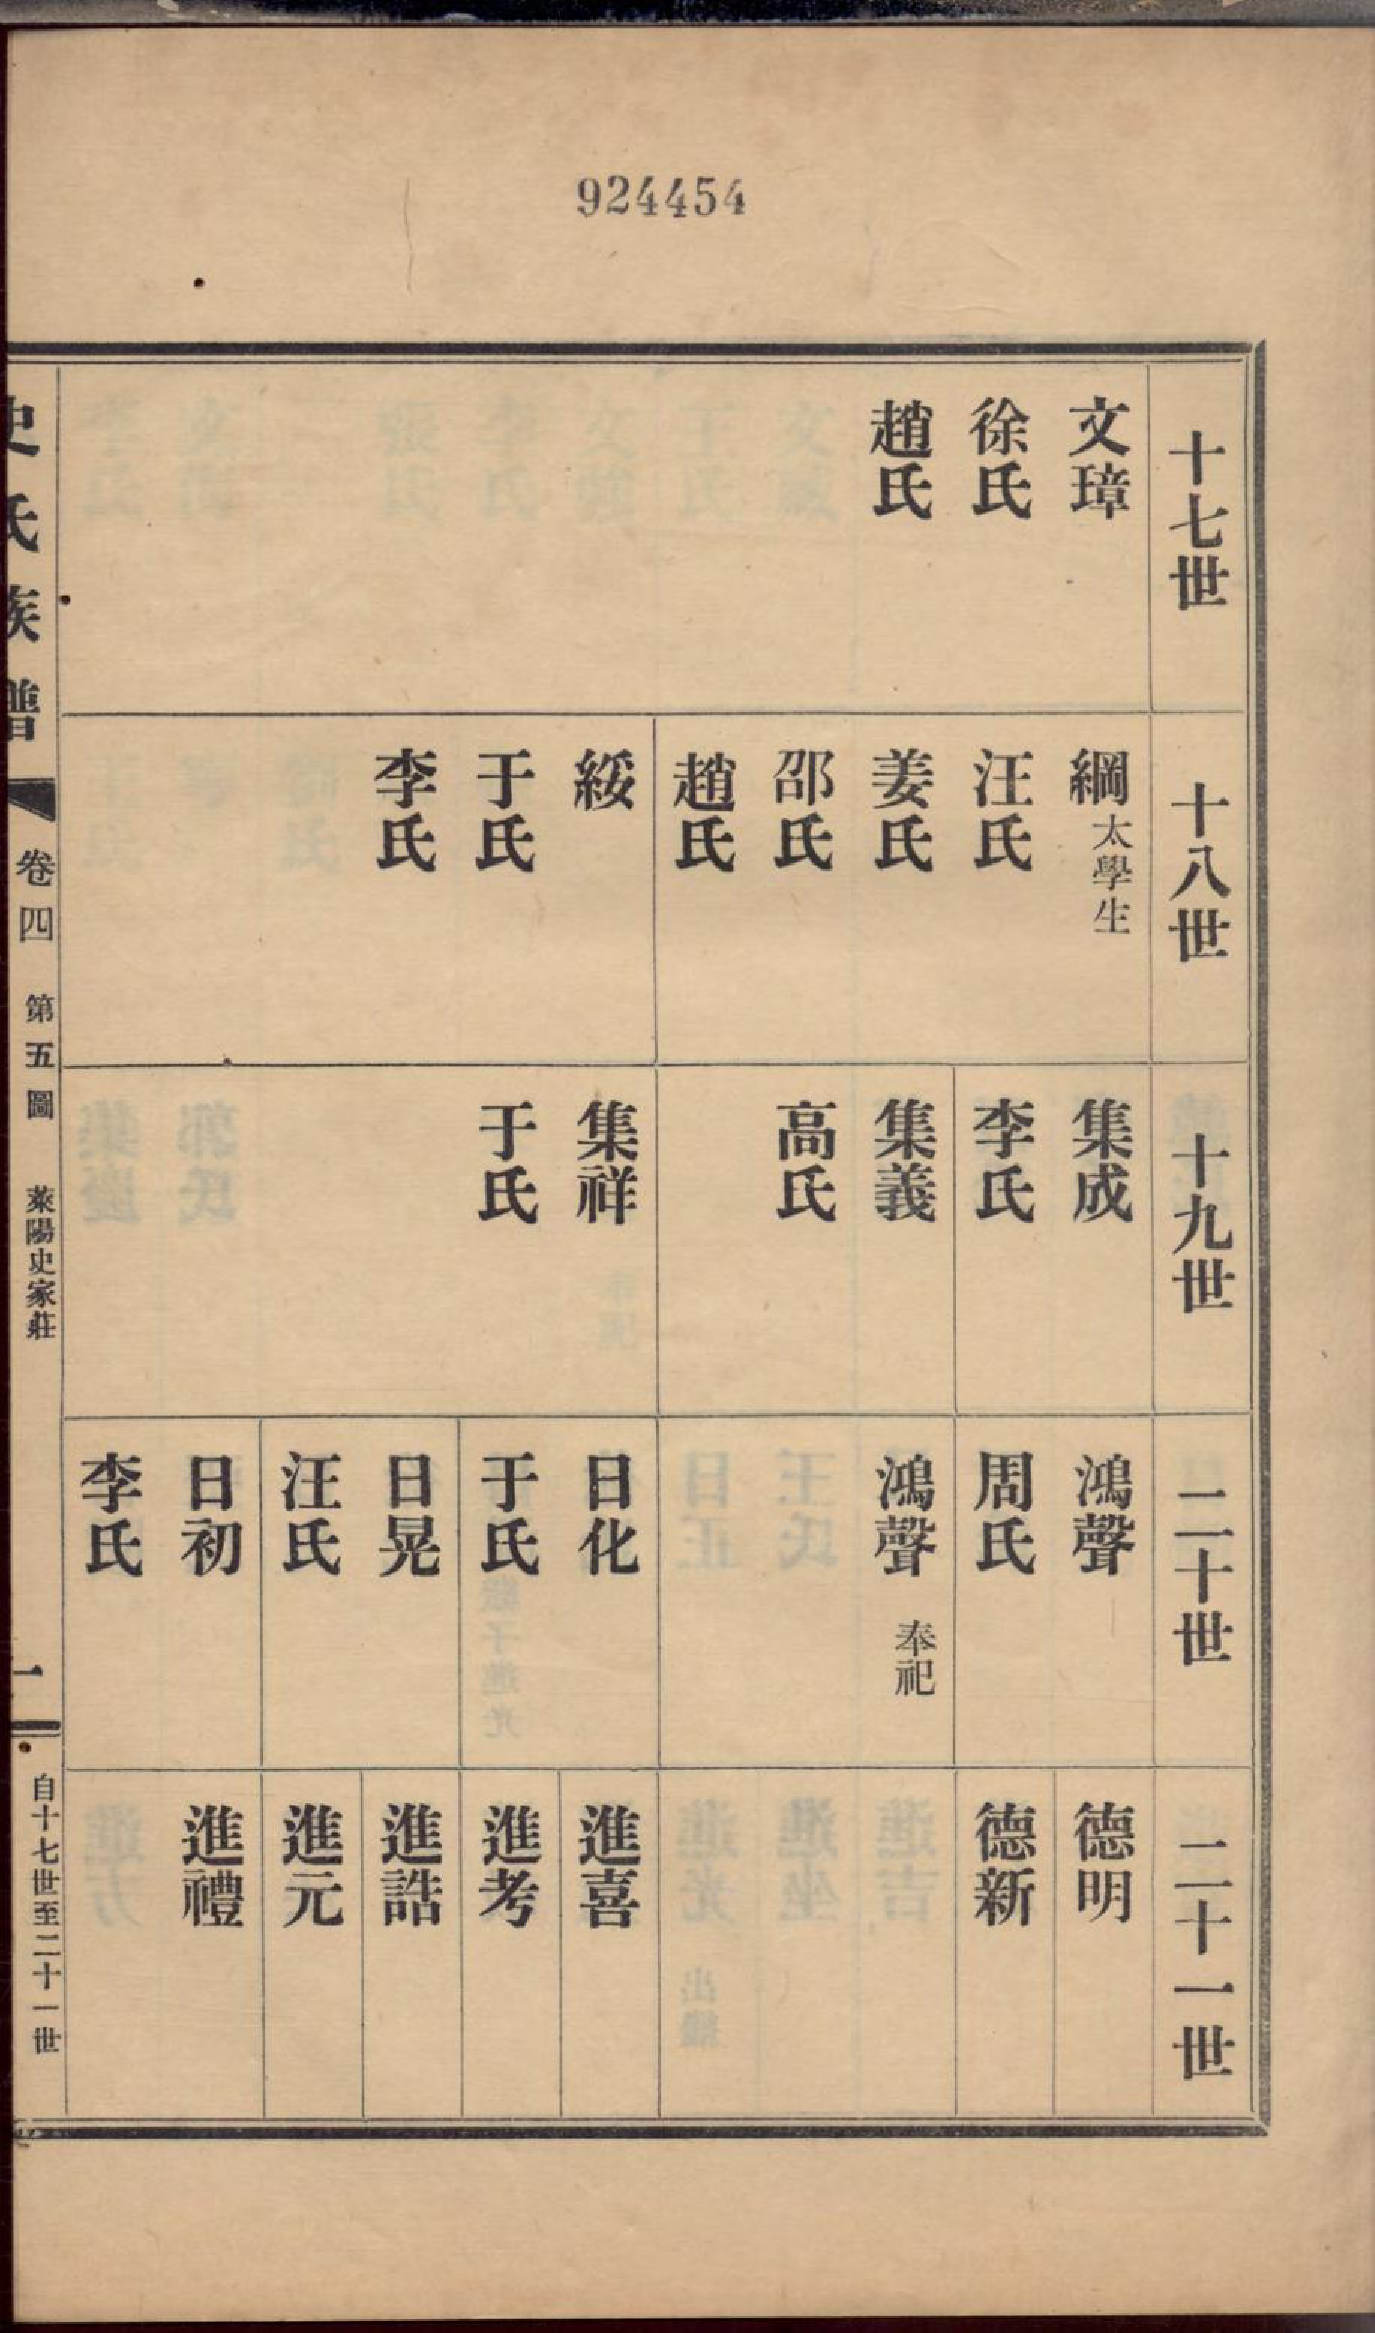 924454
十七世
文璋
徐氏
趙氏
十八世
綱 太學生
汪氏
姜氏
邵氏
趙氏
綏
于氏
李氏
十九世
集成
李氏
集義
高氏
集祥
于氏
二十世
鴻聲
周氏
鴻聲 奉祀
日化
于氏
日晃
汪氏
日初
李氏
二十一世
德明
德新
進喜
進考
進誥
進元
進禮
史氏族譜
卷四 第五圖 萊陽史家莊
一
自十七世至二十一世